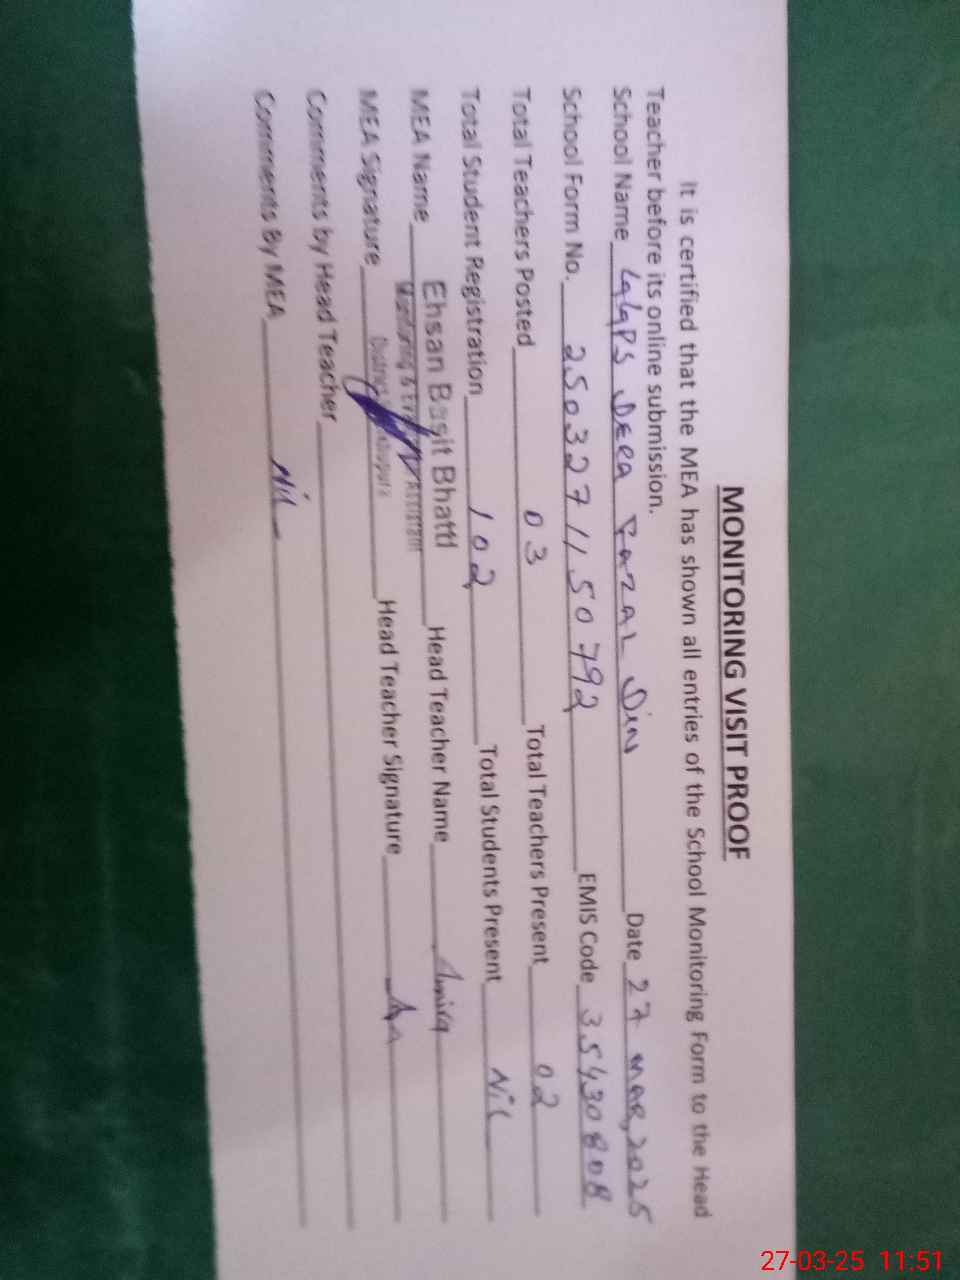 MONITORING VISIT PROOF
It is certified that the MEA has shown all entries of the School Monitoring Form to the Head
Teacher before its online submission.
School Name GGPS DERA FAZAL DIN Date 27 MAR, 2025
School Form No. 250327 1150792 EMIS Code 35430808
Total Teachers Posted 03 Total Teachers Present 02
Total Student Registration 102 Total Students Present Nil
MEA Name Ehsan Basit Bhatti Head Teacher Name
Monitoring & Assistant
MEA Signature District Head Teacher Signature
Comments by Head Teacher
Comments By MEA Nil
27-03-25 11:51